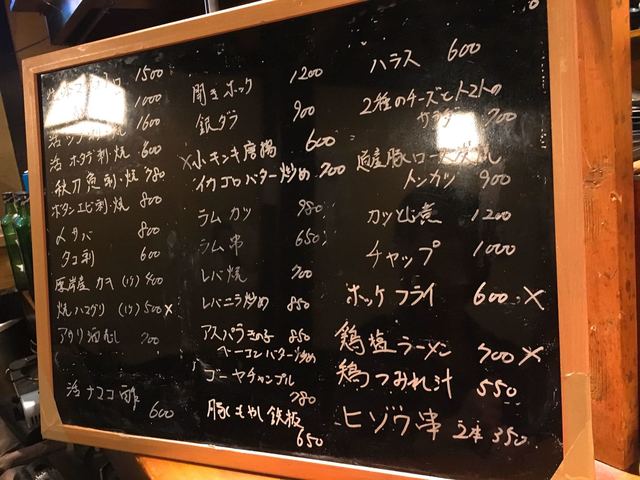 1500
1000
活 1600
活ホタテ刺・焼 600
秋刀魚刺・焼 780
ボタンエビ刺・焼 800
〆サバ 800
タコ刺 600
厚岸産カキ(1ケ) 400
焼ハマグリ(1ケ) 500 ×
アサリ酒むし 700
活ナマコ酢
600
開きホッケ 1200
銀ダラ 900
×小キンキ唐揚 600
イカゴロバター炒め 700
ラムカツ 980
ラム串 650
レバ焼 700
レバニラ炒め 850
アスパラきのこ 850
ベーコンバター炒め
ゴーヤチャンプル
780
豚もやし鉄板
650
ハラス 600
2種のチーズとトマトの
サラダ 700
道産豚ロース
トンカツ 900
カツとじ煮 1200
チャップ 1000
ホッケフライ 600 ×
鶏塩ラーメン 700 ×
鶏つみれ汁 550
ヒゾウ串 2本 350